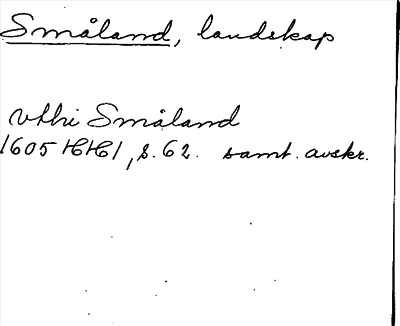 Småland, landskap
vthi Småland
1605 HHI, s. 62. samt. avskr.